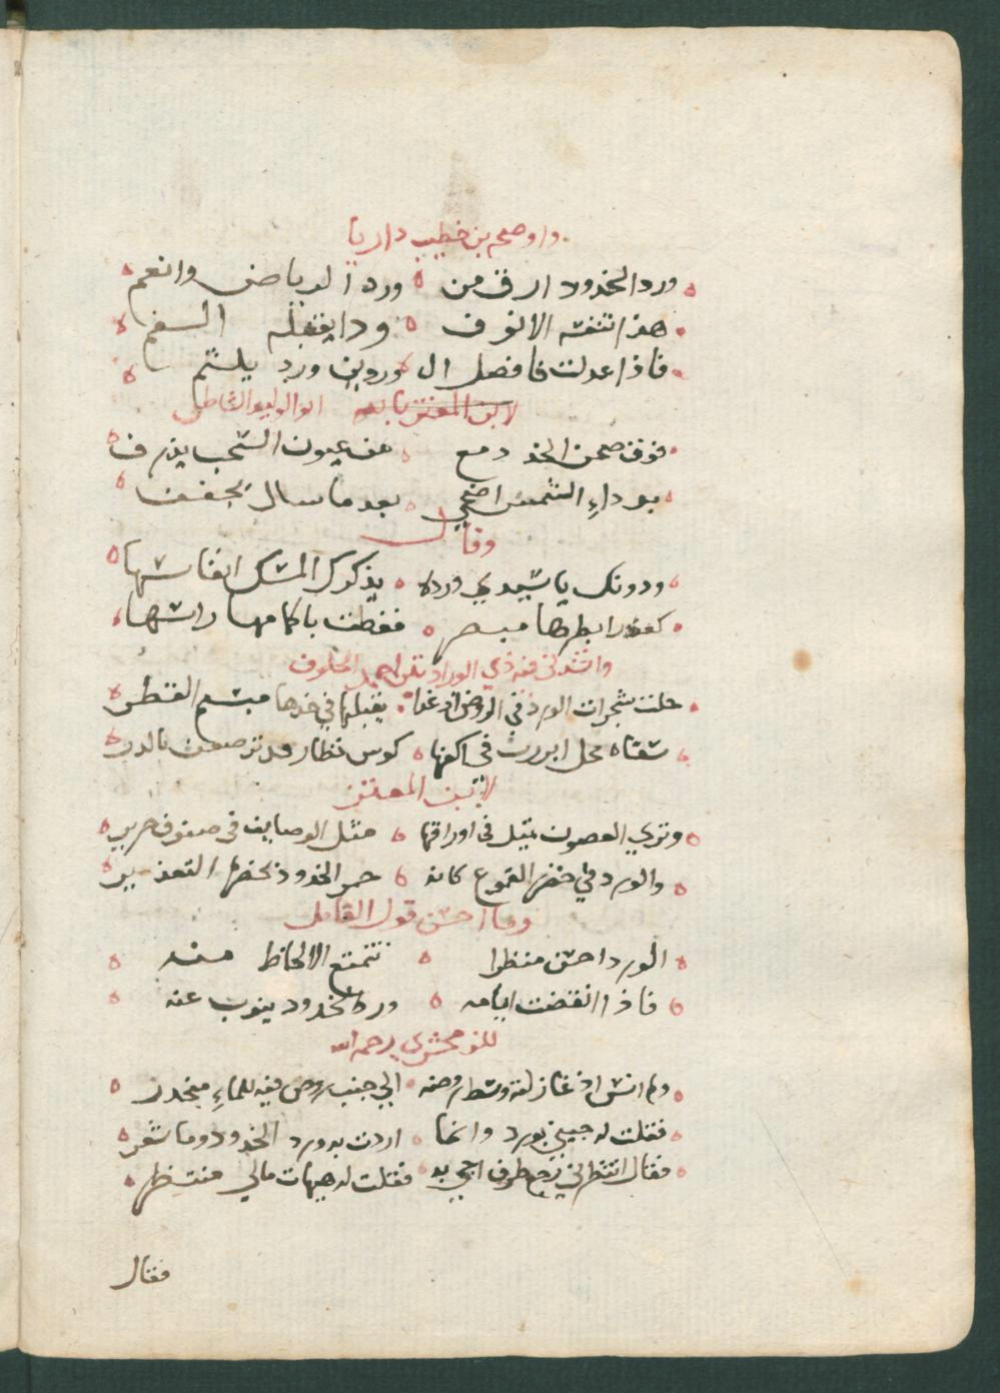 واوضح بن خطيب داريا
ورد الخدود ارق من ورد الرياض وانعم
هذا تنشقه الانوف وذا يقبله الفم
فاذا عدلت فافضل ال وردين ورد يلثم
لابن المعتز ابو الوليد الشاطبي
فوق صحن الخد دمع من عيون السحب يذرف
برداء الشمس اضحى بعد ما سال يجفف
وقال
ودونك يا سيدي وردة يذكرك المسك انفاسها
كعذراء ابصرها مبصر فغطت باكمامها راسها
وانشدني
حلت شجرات الورد في الروض اذ غدا يقبلها في خدها مبسم القطر
في اكفها كوس نظار قد ترصعت بالدر
لابن المعتز
وترى الغصون تميل في اوراقها مثل الوصايف في صنوف حرير
والورد في خضر القموع كانه حمر الخدود
وما احسن قول القايل
الورد احسن منظرا تتمتع الالحاظ منه
فاذا انقضت ايامه ورد الخدود ينوب عنه
للزمخشري رحمه الله
ولم انس اذ غازلته وسط روضه الي جنب روض فيه للماء منحدر
فقلت له جيني بورد وانما اردت به ورد الخدود وما شعر
فقال انتظرني رجع طرف اجي به فقلت له هيهات مالي منتظر
فقال